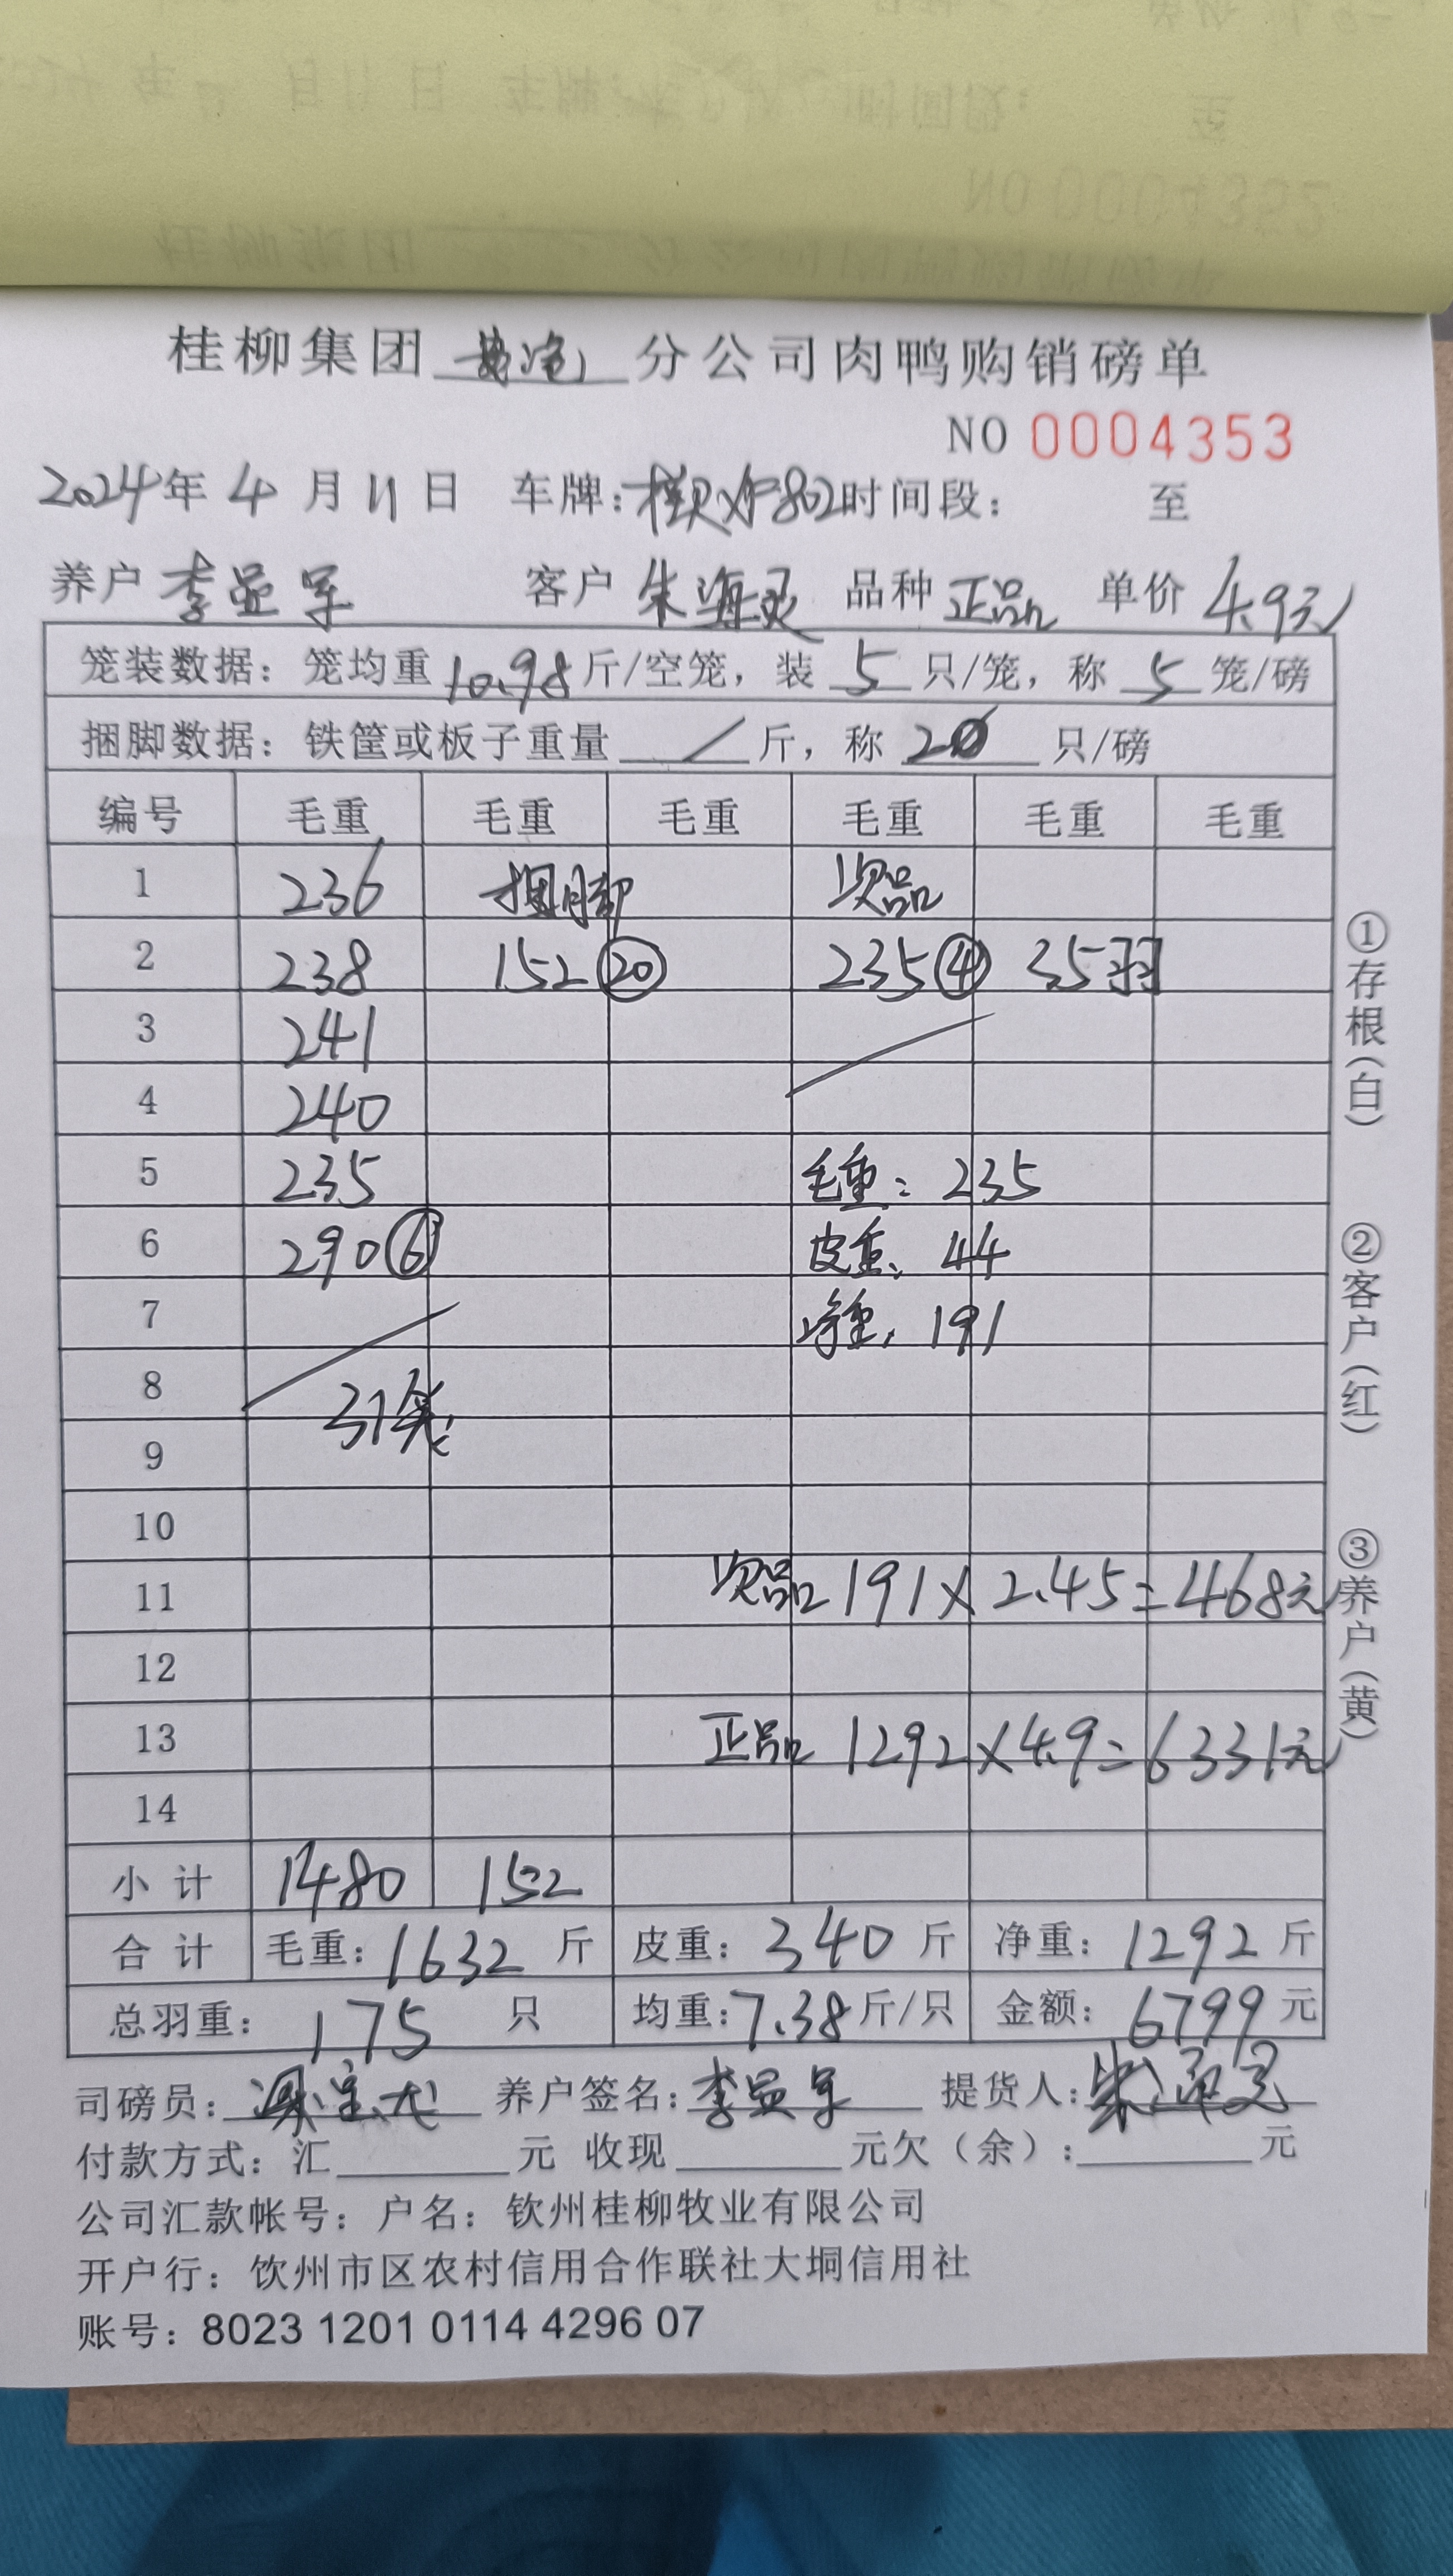 NO 0004352
桂柳集团 分公司肉鸭购销磅单
NO 0004353
2024年 4 月 11 日 车牌: 时间段: 至
养户 李显军 客户 朱海灵 品种 正品 单价 4.9元
笼装数据: 笼均重 10.98 斤/空笼, 装 5 只/笼, 称 5 笼/磅
捆脚数据: 铁筐或板子重量 / 斤, 称 20 只/磅
编号 毛重 毛重 毛重 毛重 毛重 毛重
1 236 捆脚 次品
2 238 152 20 235 4 35羽
3 241
4 240
5 235 毛重: 235
6 290 6 皮重: 44
7 净重: 191
8 31笼
9
10
11 次品 191×2.45=468元
12
13 正品 1292×4.9=6331元
14
小计 1480 152
合计 毛重: 1632 斤 皮重: 340 斤 净重: 1292 斤
总羽重: 175 只 均重: 7.38 斤/只 金额: 6799 元
司磅员: 养户签名: 李显军 提货人: 朱海灵
付款方式: 汇 元 收现 元欠(余): 元
公司汇款帐号: 户名: 钦州桂柳牧业有限公司
开户行: 饮州市区农村信用合作联社大垌信用社
账号: 8023 1201 0114 4296 07
①存根(白)
②客户(红)
③养户(黄)